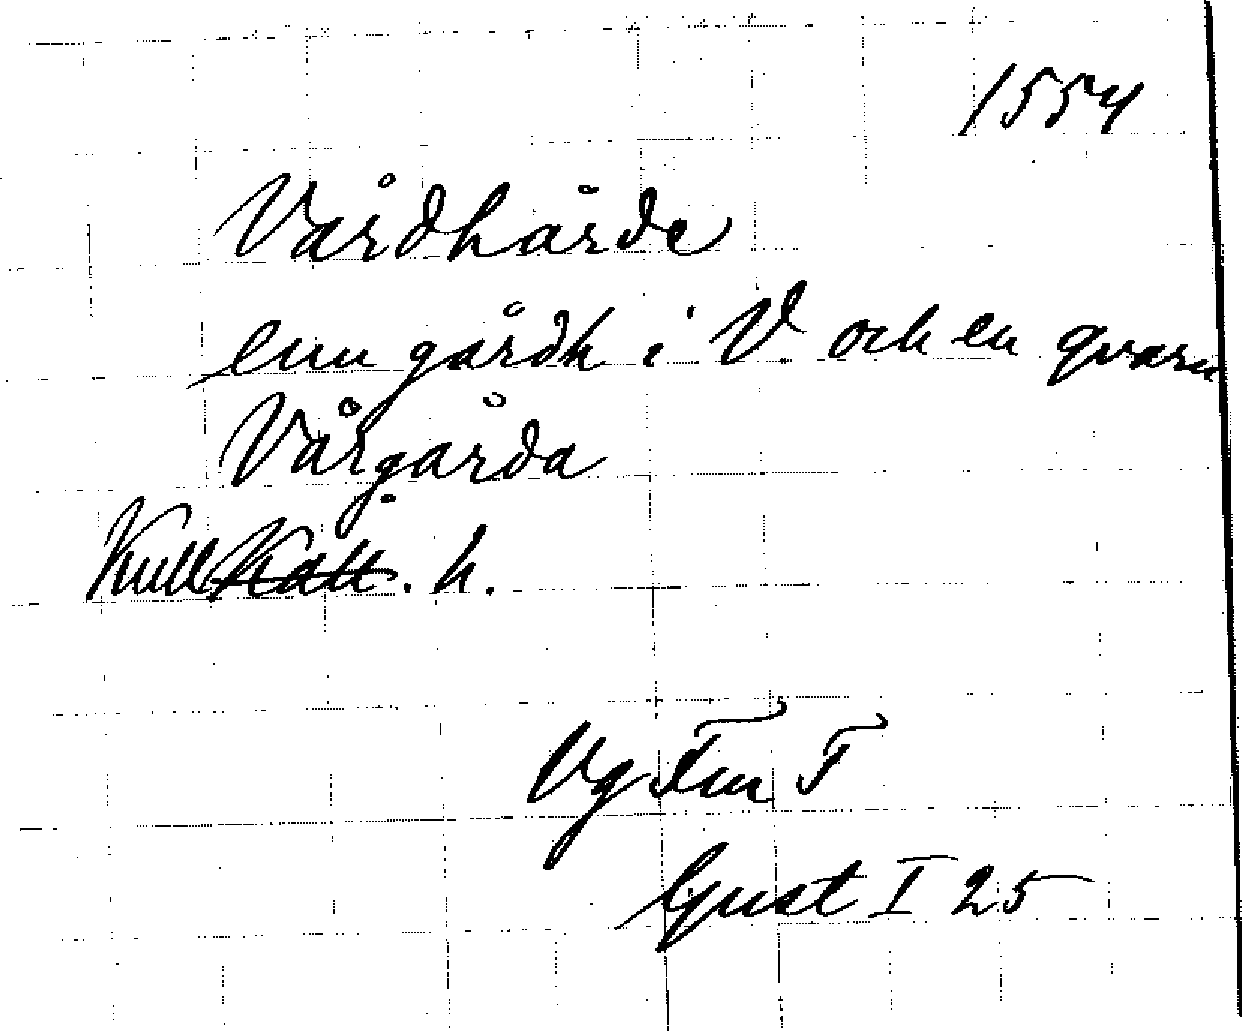 1554
Vårdhårde
enn gårdh i V. och en qvarn
Vårgårda
Kull Kåll. h.
Vg Fm F
Gust I 25